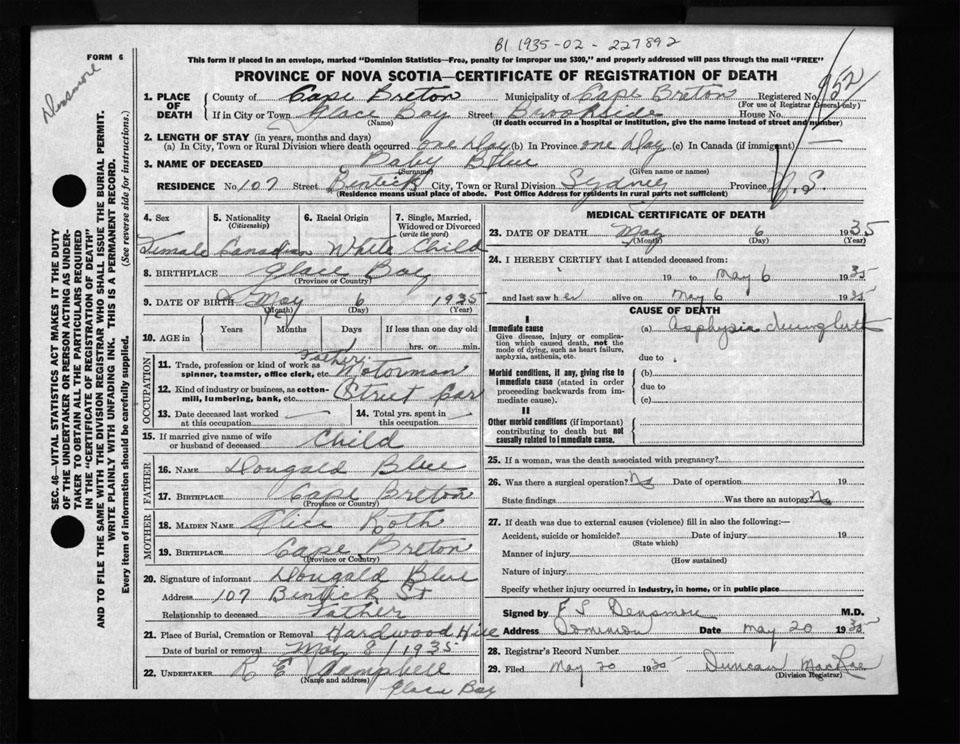 B1 1935-02-227892
FORM 6
Densmore
This form if placed in an envelope, marked "Dominion Statistics—Free, penalty for improper use $300," and properly addressed will pass through the mail "FREE"
PROVINCE OF NOVA SCOTIA—CERTIFICATE OF REGISTRATION OF DEATH
SEC. 46—VITAL STATISTICS ACT MAKES IT THE DUTY
OF THE UNDERTAKER OR PERSON ACTING AS UNDER-
TAKER TO OBTAIN ALL THE PARTICULARS REQUIRED
IN THE "CERTIFICATE OF REGISTRATION OF DEATH"
AND TO FILE THE SAME WITH THE DIVISION REGISTRAR WHO SHALL ISSUE THE BURIAL PERMIT.
WRITE PLAINLY WITH UNFADING INK. THIS IS A PERMANENT RECORD.
Every item of information should be carefully supplied. (See reverse side for instructions.)
1. PLACE OF DEATH County of Cape Breton Municipality of Cape Breton Registered No. 952
(For use of Registrar General only)
If in City or Town Glace Bay Street Brookside House No.
(Name) (If death occurred in a hospital or institution, give the name instead of street and number)
2. LENGTH OF STAY (in years, months and days)
(a) In City, Town or Rural Division where death occurred one Day (b) In Province one Day (c) In Canada (if immigrant) —
3. NAME OF DECEASED Baby Blue
(Surname) (Given name or names)
RESIDENCE No. 107 Street Bentick City, Town or Rural Division Sydney Province N.S.
(Residence means usual place of abode. Post Office Address for residents in rural parts not sufficient)
4. Sex 5. Nationality 6. Racial Origin 7. Single, Married,
(Citizenship) Widowed or Divorced
(write the word)
Female Canadian White Child
8. BIRTHPLACE Glace Bay
(Province or Country)
9. DATE OF BIRTH May 6 1935
(Month) (Day) (Year)
10. AGE in Years Months Days If less than one day old
1 hrs. or min.
OCCUPATION
Father
11. Trade, profession or kind of work as Motorman
spinner, teamster, office clerk, etc.
12. Kind of industry or business, as cotton- Street car
mill, lumbering, bank, etc.
13. Date deceased last worked — 14. Total yrs. spent in —
at this occupation at this occupation
15. If married give name of wife Child
or husband of deceased
FATHER
16. NAME Dougald Blue
17. BIRTHPLACE Cape Breton
(Province or Country)
MOTHER
18. MAIDEN NAME Alice Roth
19. BIRTHPLACE Cape Breton
(Province or Country)
20. Signature of informant Dougald Blue
Address 107 Bentick St
Relationship to deceased Father
21. Place of Burial, Cremation or Removal Hardwood Hill
Date of burial or removal May 8 / 1935
22. UNDERTAKER R E Campbell
(Name and address)
Glace Bay
MEDICAL CERTIFICATE OF DEATH
23. DATE OF DEATH May 6 1935
(Month) (Day) (Year)
24. I HEREBY CERTIFY that I attended deceased from:
19 to May 6 1935
and last saw her alive on May 6 1935
CAUSE OF DEATH
I
Immediate cause (a) Asphyxia during birth
Give disease, injury or complica-
tion which caused death, not the
mode of dying, such as heart failure,
asphyxia, asthenia, etc. due to
Morbid conditions, if any, giving rise to (b)
immediate cause (stated in order due to
proceeding backwards from im-
mediate cause). (c)
II
Other morbid conditions (if important)
contributing to death but not
causally related to immediate cause.
25. If a woman, was the death associated with pregnancy?
26. Was there a surgical operation? No Date of operation 19
State findings Was there an autopsy No
27. If death was due to external causes (violence) fill in also the following:—
Accident, suicide or homicide? Date of injury 19
(State which)
Manner of injury
(How sustained)
Nature of injury
Specify whether injury occurred in industry, in home, or in public place
Signed by F S Densmore M.D.
Address Dominion Date May 20 1935
28. Registrar's Record Number
29. Filed May 20 1935 Duncan MacRae
(Division Registrar)